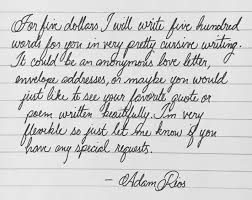 For five dollars I will write five hundred
words for you in very pretty cursive writing.
It could be an anonymous love letter,
envelope addresses, or maybe you would
just like to see your favorite quote or
poem written beautifully. I'm very
flexible so just let me know if you
have any special requests.
- Adam Rios